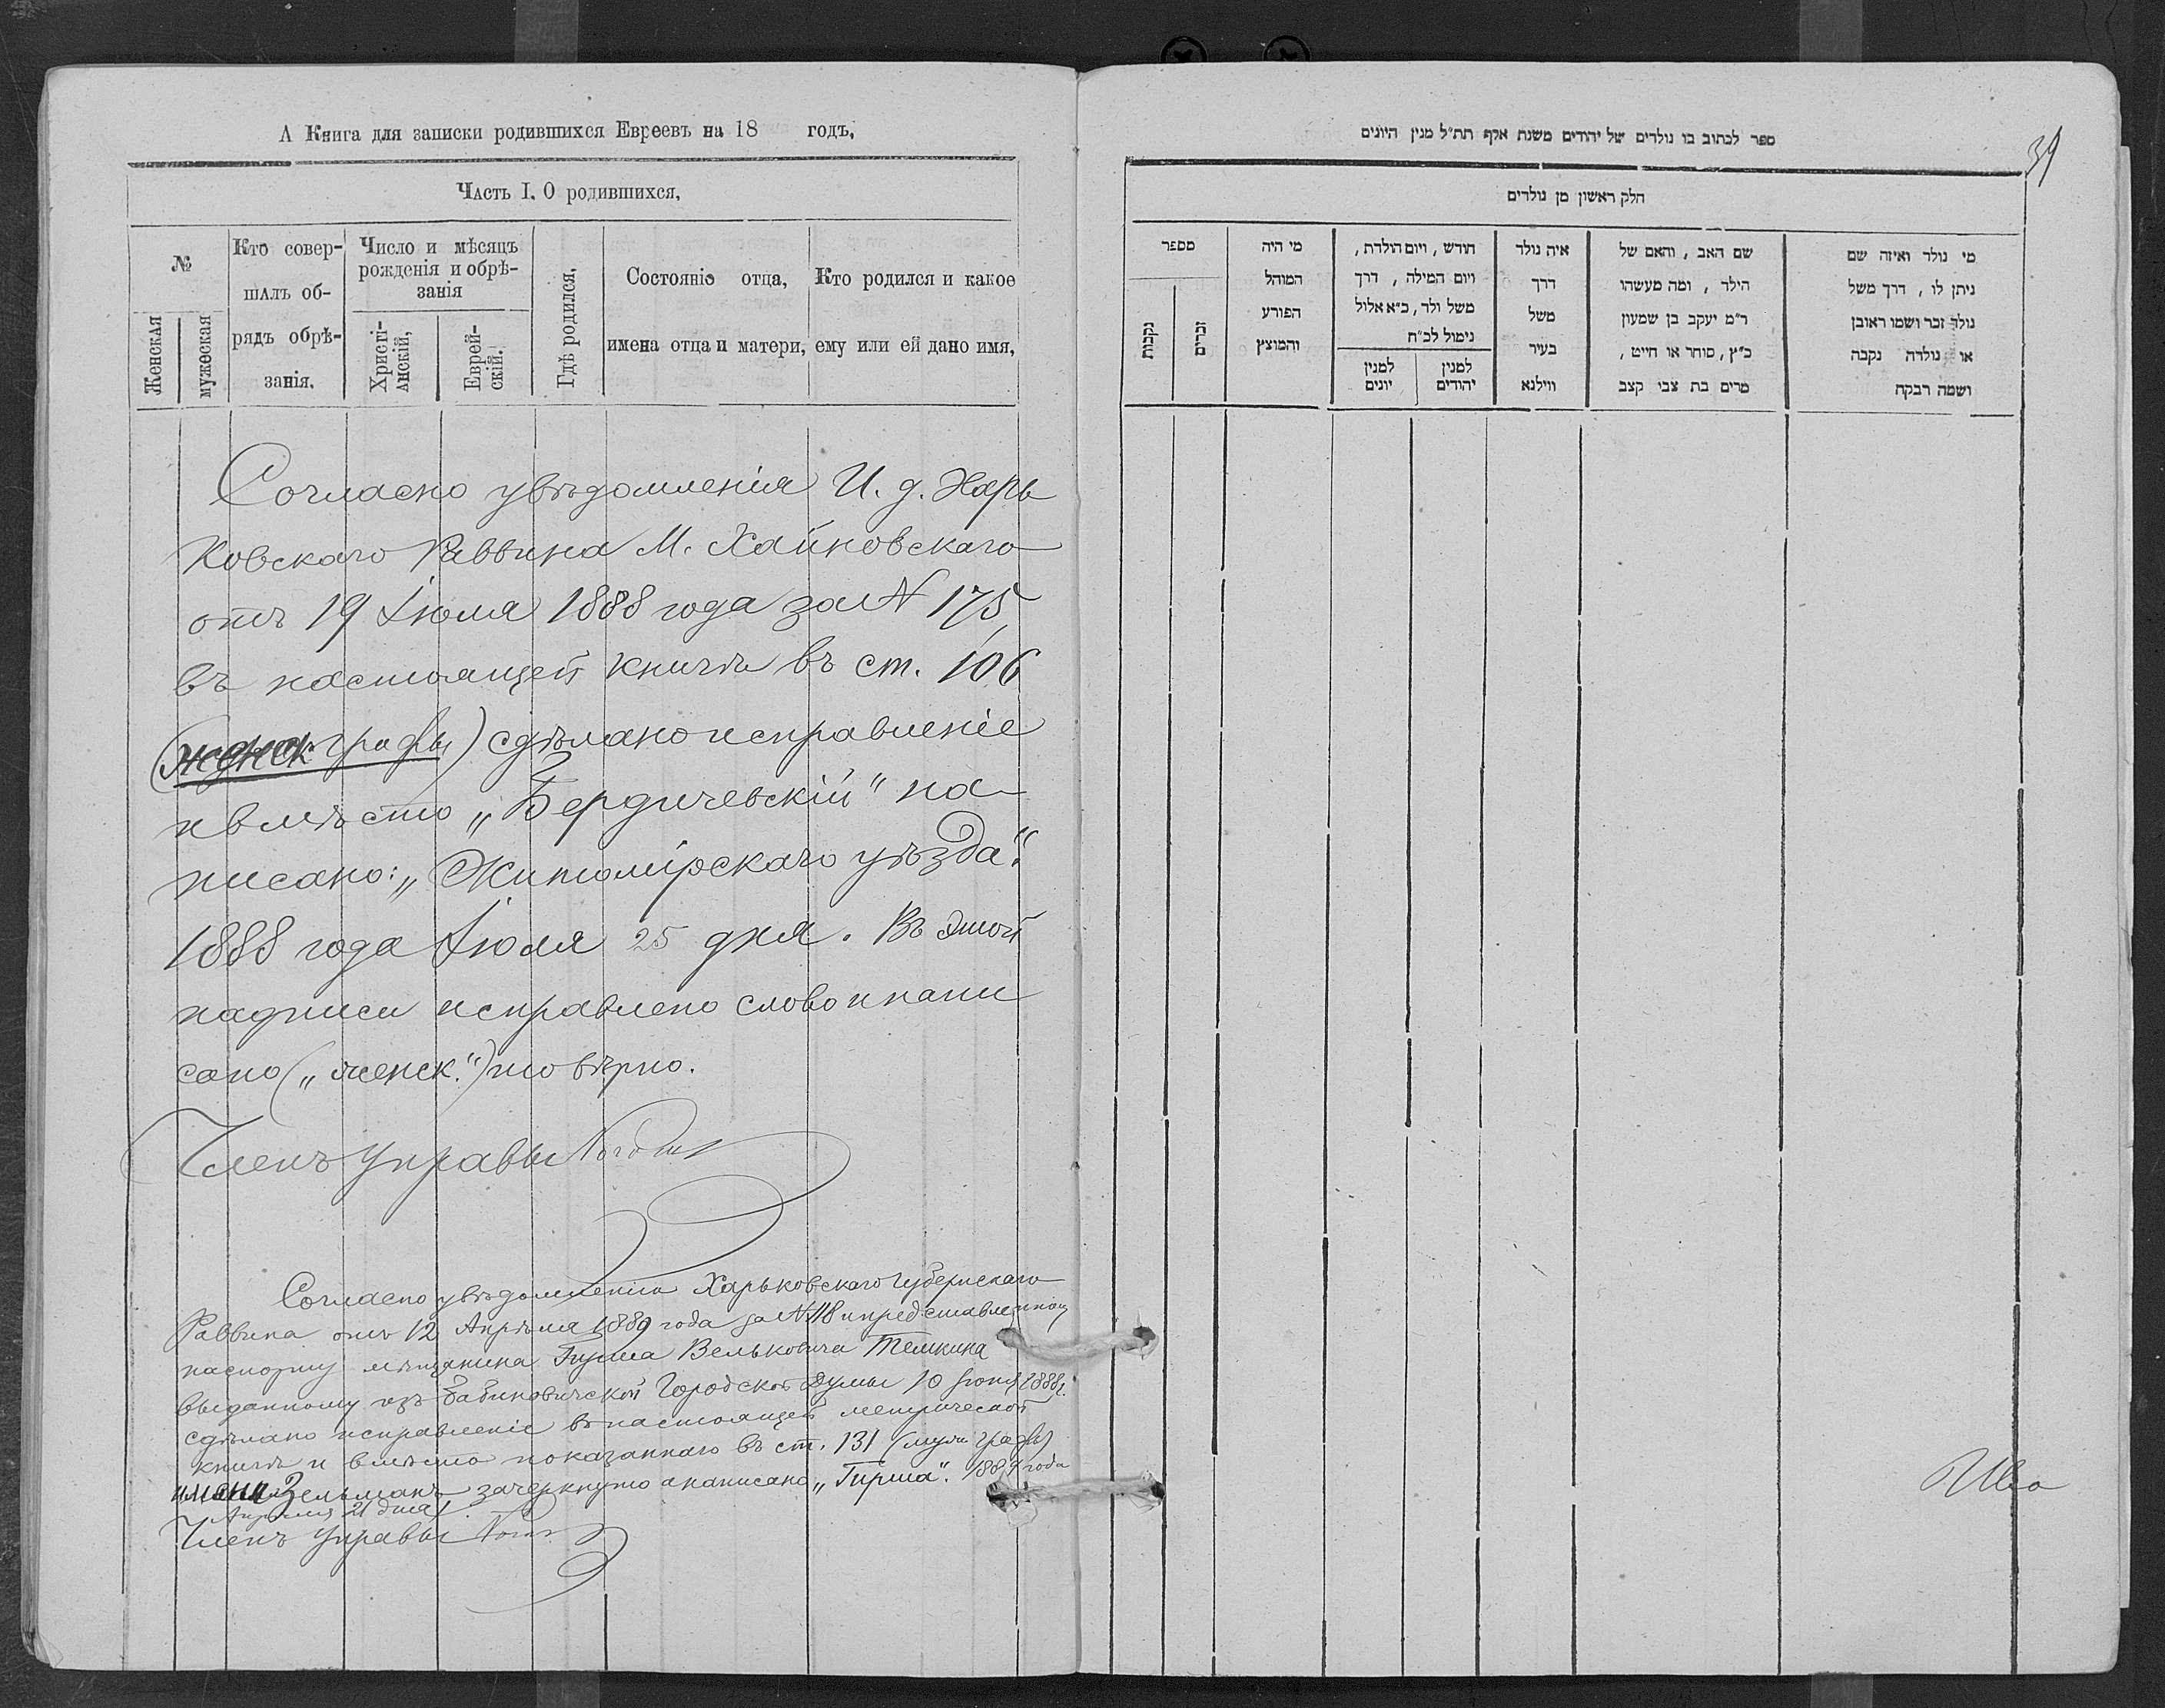 А Книга для записки родившихся Евреевъ на 18 годъ,
Часть I. О родившихся.
№
Женская
мужеская
Кто совер-
шалъ об-
рядъ обрѣ-
занія.
Число и мѣсяцъ
рожденія и обрѣ-
занія
Христі-
анскій,
Еврей-
скій.
Гдѣ родился.
Состояніе отца,
имена отца и матери,
Кто родился и какое
ему или ей дано имя,
Согласно увѣдомленія И. д. Харь
ковскаго Раввина М. Хайновскаго
отъ 19 Іюля 1888 года за № 175,
въ настоящей книгѣ въ ст. 106
(женск. графы) сдѣлано исправленіе
и вмѣсто „Бердичевскій" на-
писано: „Житомірскаго уѣзда".
1888 года Іюля 25 дня. Въ этой
надписи исправлено слово и напи
сано („женск.") то вѣрно.
Членъ Управы
Согласно увѣдомленія Харьковскаго Губернскаго
Раввина отъ 12 Апрѣля 1889 года за № 118 и представленному
паспорту мѣщанина Гирша Вельковича Темкина
выданному изъ Бабиновичской Городской Думы 10 Іюня 1888 г.
сдѣлано исправленіе въ настоящей метрической
книгѣ и вмѣсто показаннаго въ ст. 131 (муж. графы)
имени Зельманъ зачеркнуто а написано „Гирша". 1889 года
Апрѣля 21 дня.
Членъ Управы
ספר לכתוב בו נולדים של יהודים משנת אלף תת״ל מנין היונים
39
חלק ראשון מן נולדים
מספר
נקבות
זכרים
מי היה
המוהל
הפורע
והמוצץ
חודש , ויום הולדת ,
ויום המילה , דרך
משל ולד , כ״א אלול
נימול לכ״ח
למנין
יונים
למנין
יהודים
איה נולד
דרך
משל
בעיר
ווילנא
שם האב , והאם של
הילד , ומה מעשהו
ר״מ יעקב בן שמעון
כ״ץ , סוחר או חייט ,
מרים בת צבי קצב
מי נולד ואיזה שם
ניתן לו , דרך משל
נולד זכר ושמו ראובן
או נולדה נקבה
ושמה רבקה